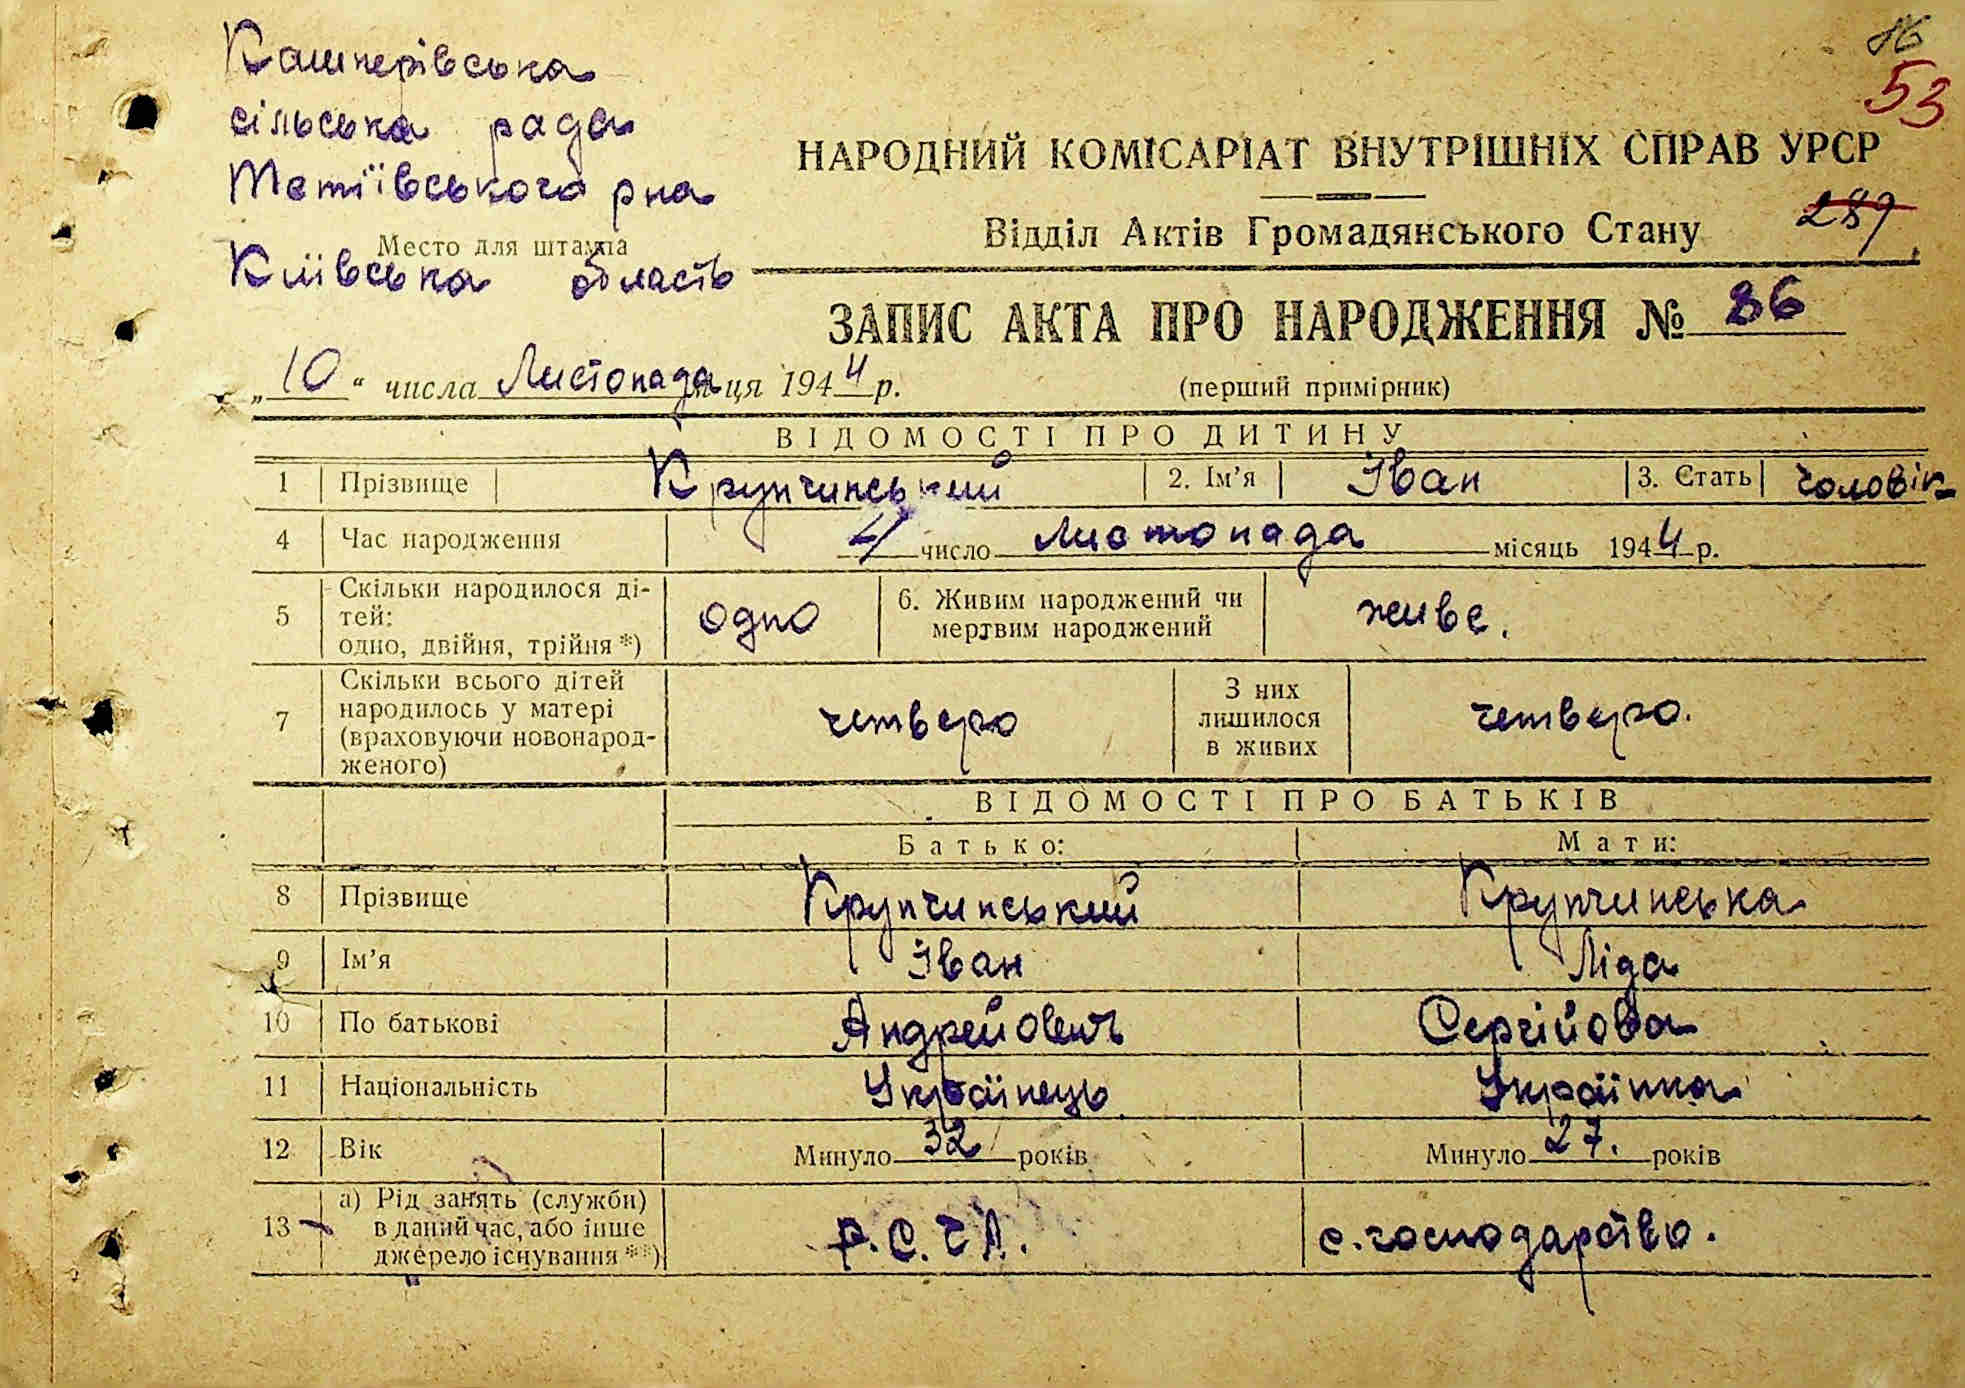 Кашперівська
сільська рада
Тетіївського рна
Место для штампа
Київська область
53
НАРОДНИЙ КОМІСАРІАТ ВНУТРІШНІХ СПРАВ УРСР
Відділ Актів Громадянського Стану
287
ЗАПИС АКТА ПРО НАРОДЖЕННЯ № 86
„10“ числа Листопада м-ця 1944 р.
(перший примірник)
ВІДОМОСТІ ПРО ДИТИНУ
1 Прізвище Крупчинський 2. Ім'я Іван 3. Стать чоловік
4 Час народження 4 число Листопада місяць 1944 р.
5 Скільки народилося ді-
тей:
одно, двійня, трійня *)
одно
6. Живим народжений чи
мертвим народжений
живе.
7 Скільки всього дітей
народилось у матері
(враховуючи новонарод-
женого)
четверо
З них
лишилося
в живих
четверо.
ВІДОМОСТІ ПРО БАТЬКІВ
Батько: Мати:
8 Прізвище Крупчинський Крупчинська
9 Ім'я Іван Ліда
10 По батькові Андрейович Сергійовна
11 Національність Українець Українка
12 Вік Минуло 32 років Минуло 27. років
13 а) Рід занять (служби)
в даний час, або інше
джерело існування **)
Р.С.ЧА. с.господарство.